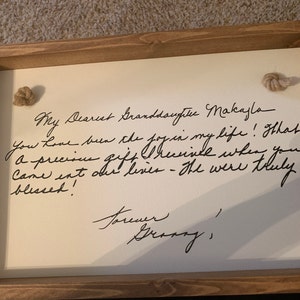 My Dearest Granddaughter Makayla
You have been the joy in my life! What
A precious gift I received when you
Came into our lives - We were truly
blessed!
Forever
Granny!